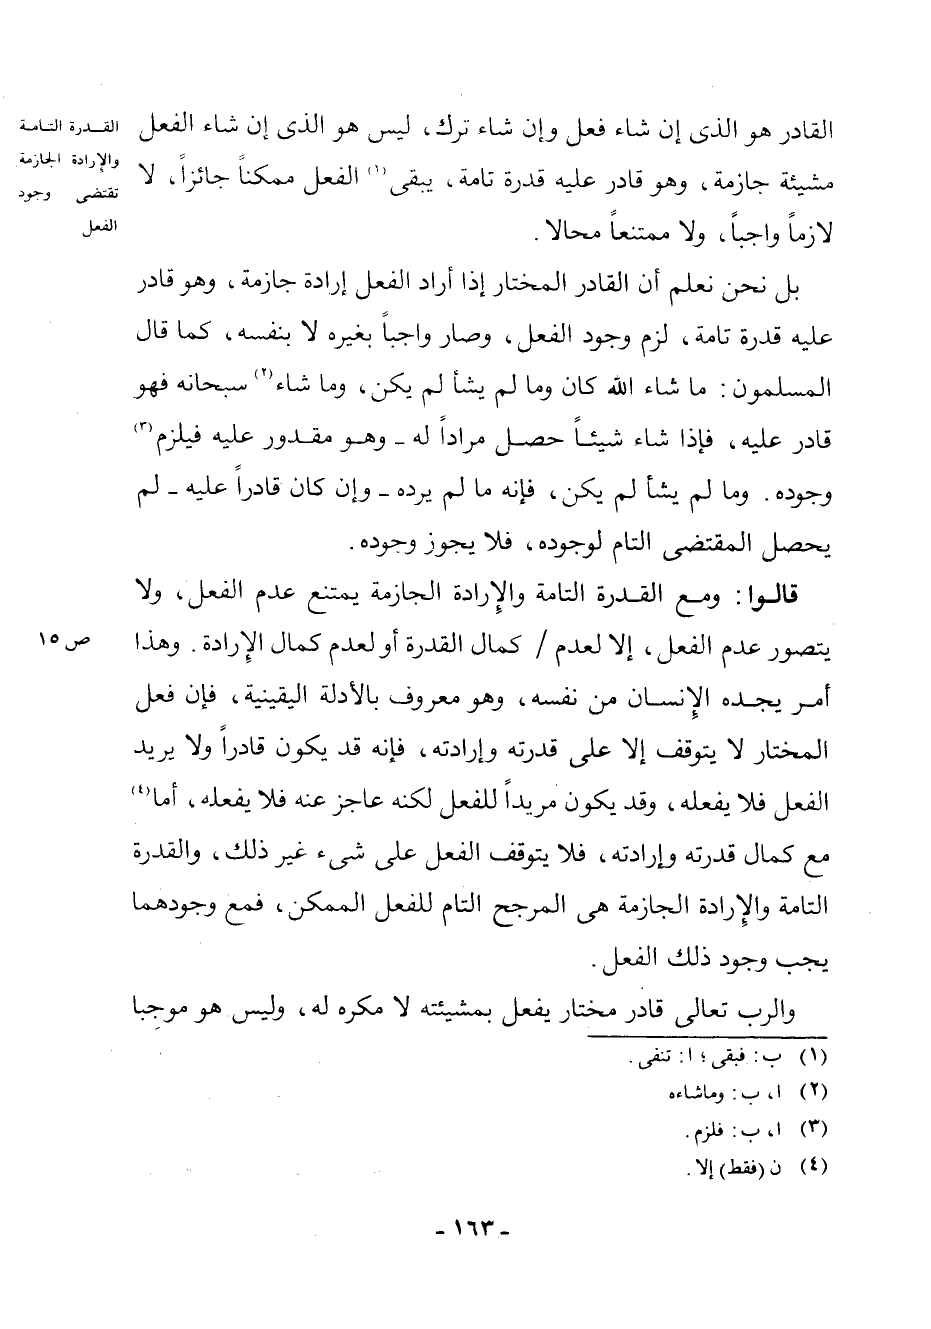 القادر هو الذى إن شاء فعل وإن شاء ترك، ليس هو الذى إن شاء الفعل
مشيئة جازمة، وهو قادر عليه قدرة تامة، يبقى(١) الفعل ممكناً جائزاً، لا
لازماً واجباً، ولا ممتنعاً محالا.
القــدرة التـامـة
والإرادة الجازمة
تقتضى وجود
الفعل
بل نحن نعلم أن القادر المختار إذا أراد الفعل إرادة جازمة، وهو قادر
عليه قدرة تامة، لزم وجود الفعل، وصار واجباً بغيره لا بنفسه، كما قال
المسلمون: ما شاء الله كان وما لم يشأ لم يكن، وما شاء(٢) سبحانه فهو
قادر عليه، فإذا شاء شيئـاً حصـل مراداً له ـ وهـو مقـدور عليه فيلزم(٣)
وجوده. وما لم يشأ لم يكن، فإنه ما لم يرده ـ وإن كان قادراً عليه ـ لم
يحصل المقتضى التام لوجوده، فلا يجوز وجوده.
قالـوا: ومـع القـدرة التامة والإرادة الجازمة يمتنع عدم الفعل، ولا
يتصور عدم الفعل، إلا لعدم / كمال القدرة أو لعدم كمال الإرادة. وهذا
ص ١٥
أمـر يجـده الإنسـان من نفسه، وهو معروف بالأدلة اليقينية، فإن فعل
المختار لا يتوقف إلا على قدرته وإرادته، فإنه قد يكون قادراً ولا يريد
الفعل فلا يفعله، وقد يكون مريداً للفعل لكنه عاجز عنه فلا يفعله، أما(٤)
مع كمال قدرته وإرادته، فلا يتوقف الفعل على شىء غير ذلك، والقدرة
التامة والإرادة الجازمة هى المرجح التام للفعل الممكن، فمع وجودهما
يجب وجود ذلك الفعل.
والرب تعالى قادر مختار يفعل بمشيئته لا مكره له، وليس هو موجبا
(١) ب: فبقى؛ ا: تنفى.
(٢) ا، ب: وماشاءه
(٣) ا، ب: فلزم.
(٤) ن (فقط) إلا.
ـ ١٦٣ ـ